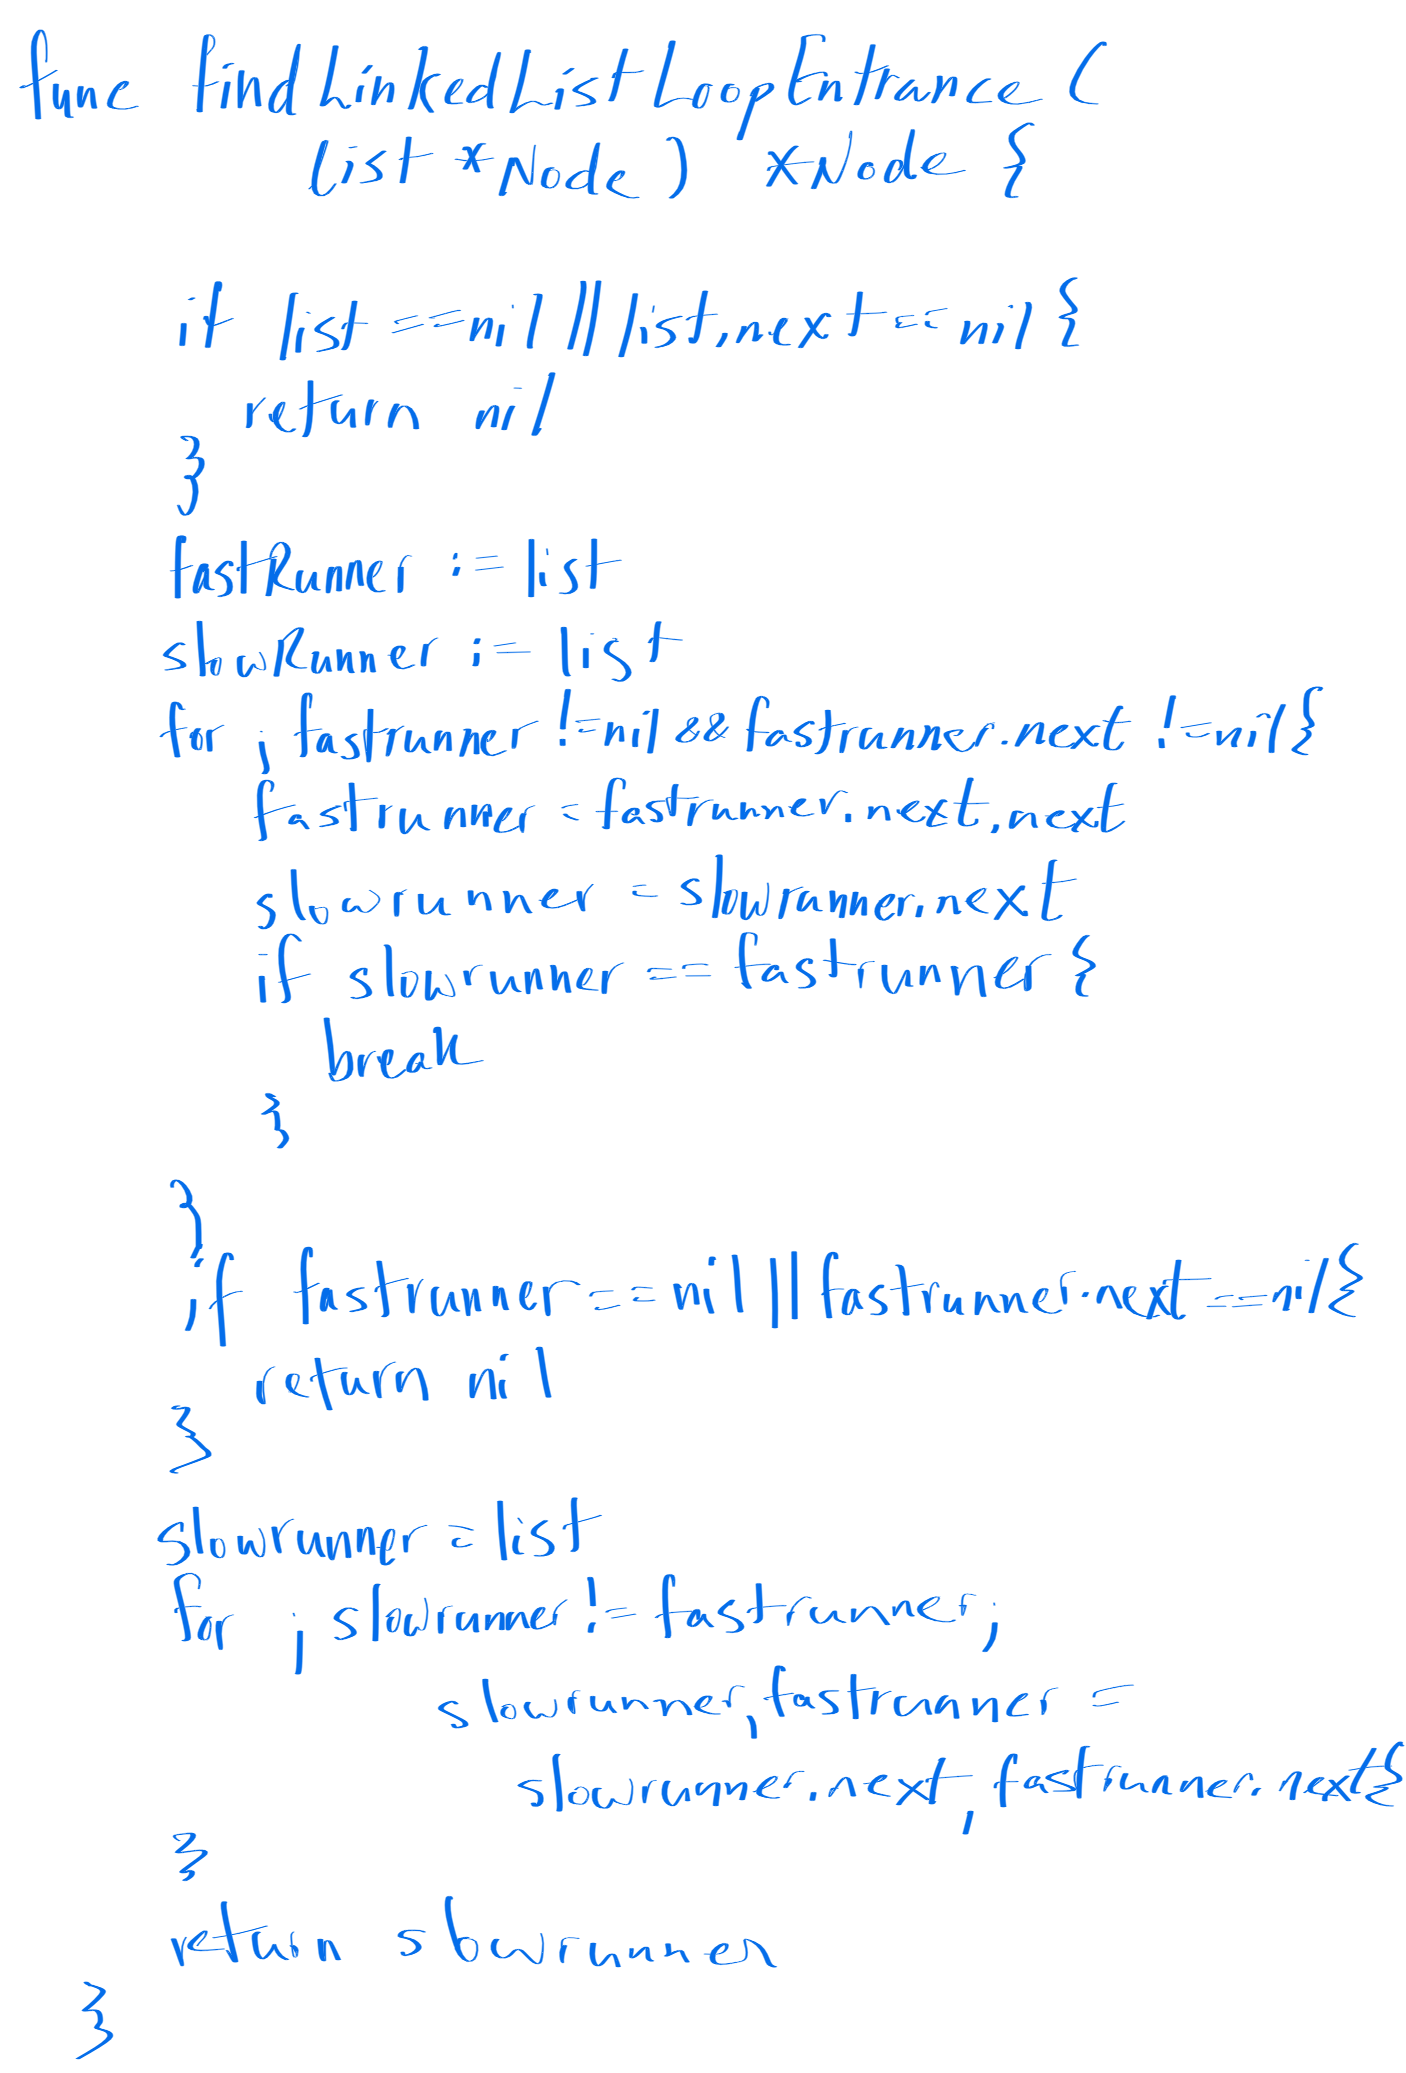 func findLinkedListLoopEntrance (
list *Node) *Node {
if list == nil || list.next == nil {
return nil
}
fastRunner := list
slowRunner := list
for ; fastrunner != nil && fastrunner.next != nil {
fastrunner = fastrunner.next.next
slowrunner = slowrunner.next
if slowrunner == fastrunner {
break
}
}
if fastrunner == nil || fastrunner.next == nil {
return nil
}
slowrunner = list
for ; slowrunner != fastrunner;
slowrunner, fastrunner =
slowrunner.next, fastrunner.next {
}
return slowrunner
}